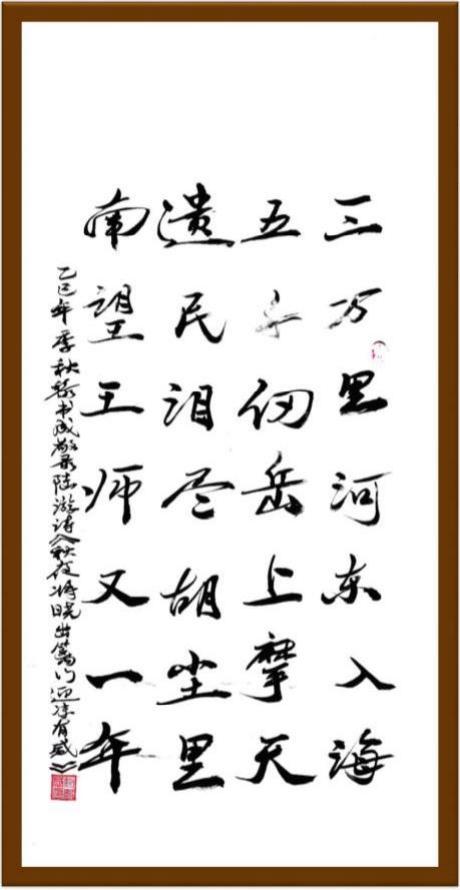 三万里河东入海
五千仞岳上摩天
遗民泪尽胡尘里
南望王师又一年
乙巳年季秋黎书成敬录陆游诗《秋夜将晓出篱门迎凉有感》